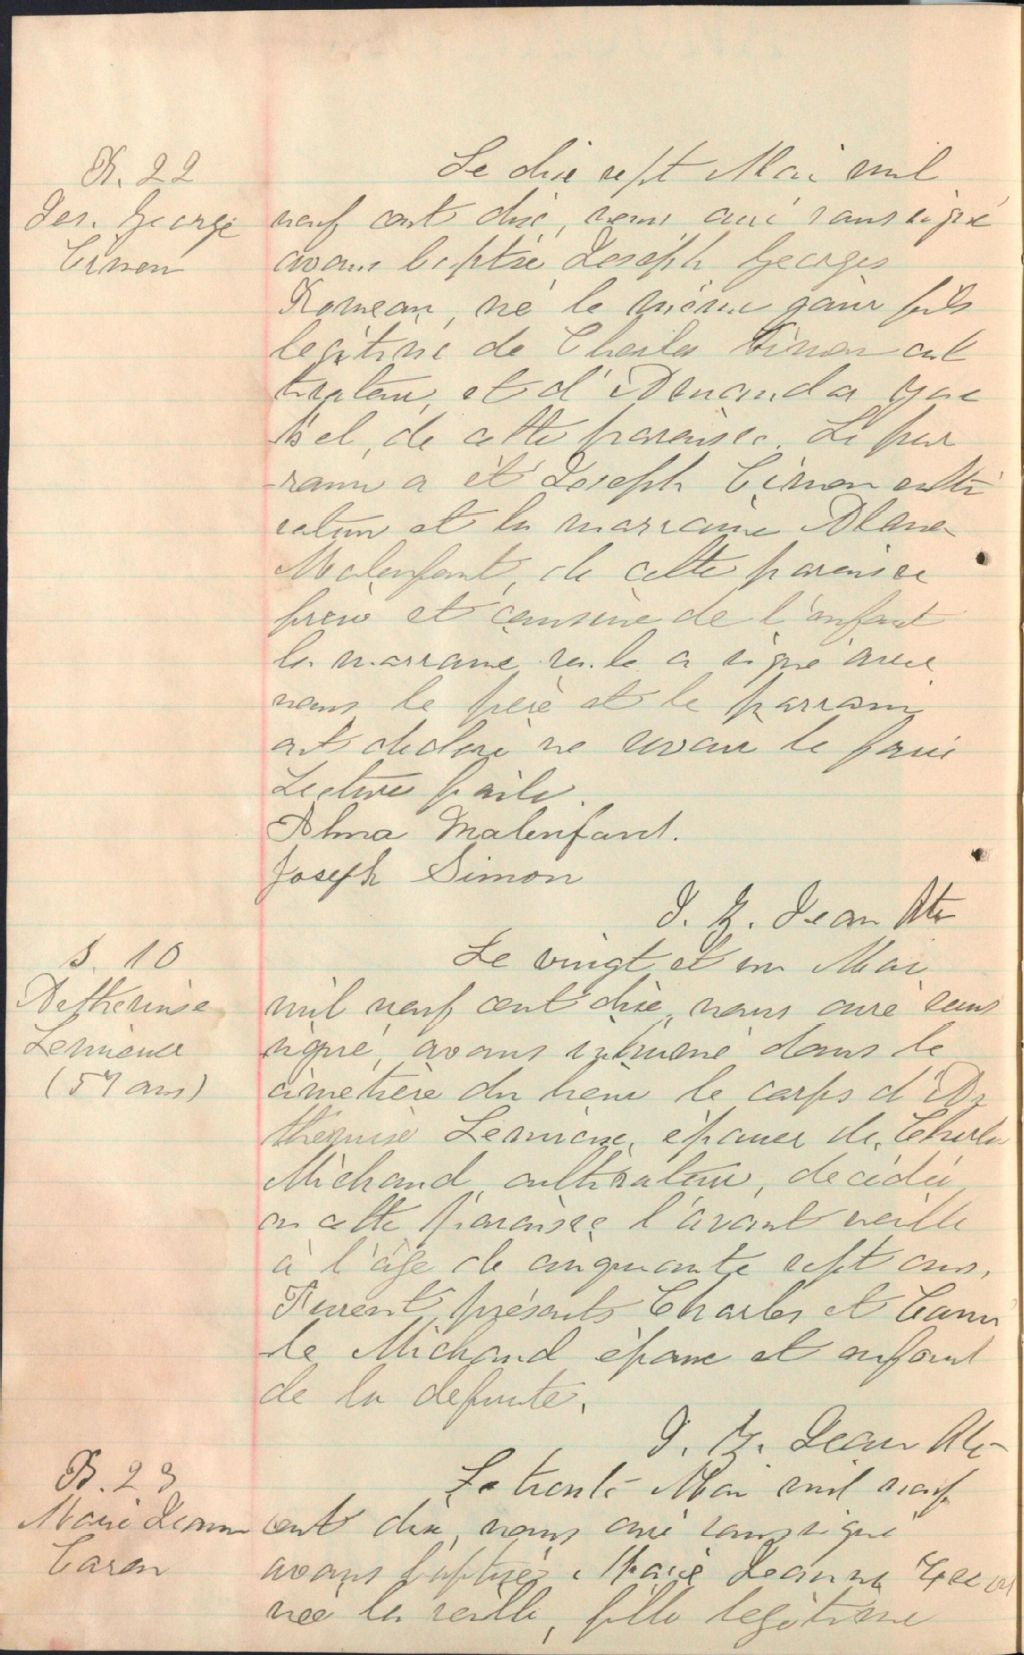 B. 22
Jos. George
Simon
Le dix sept Mai mil
neuf cent dix, nous curé soussigné
avons baptisé Joseph Georges
Romeau, né le même jour fils
legitime de Charles Simon cul
tivateur, et d'Amanda
de cette paroisse. Le par
rain a été Joseph Simon culti
vateur et la marraine Alma
Malenfant, de cette paroisse
frère et cousine de l'enfant
la marraine seule a signé avec
nous le père et le parrain
ont declaré ne savoir le faire
Lecture faite.
Alma Malenfant.
Joseph Simon
J. Z. Jean Ptr
S. 10
Arthémise
Lemieux
(57 ans)
Le vingt et un Mai
mil neuf cent dix, nous curé sous
signé, avons inhumé dans le
cimetière du lieu le corps d'Ar
thémise Lemieux, épouse de Charles
Michaud cultivateur, decédée
en cette paroisse l'avant veille
à l'âge de cinquante sept ans.
Furent présents Charles et Cami
le Michaud époux et enfant
de la defunte.
J. Z. Jean Ptr
B. 23
Marie Jeanne
Caron
Le trente Mai mil neuf
cent dix, nous curé soussigné
avons baptisé Marie Jeanne
née la veille, fille legitime